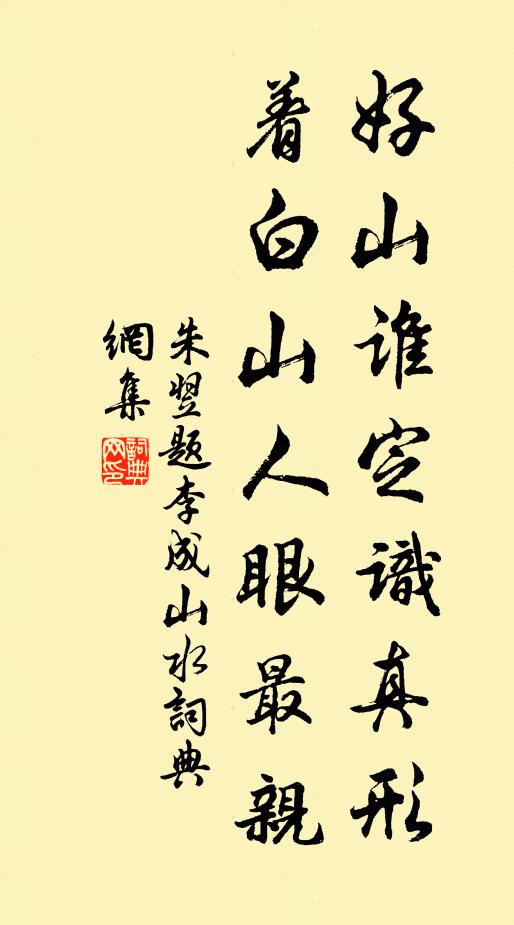 好山谁定識真形
着白山人眼最親
朱翌题李成山水詞典
網集
詞典网印